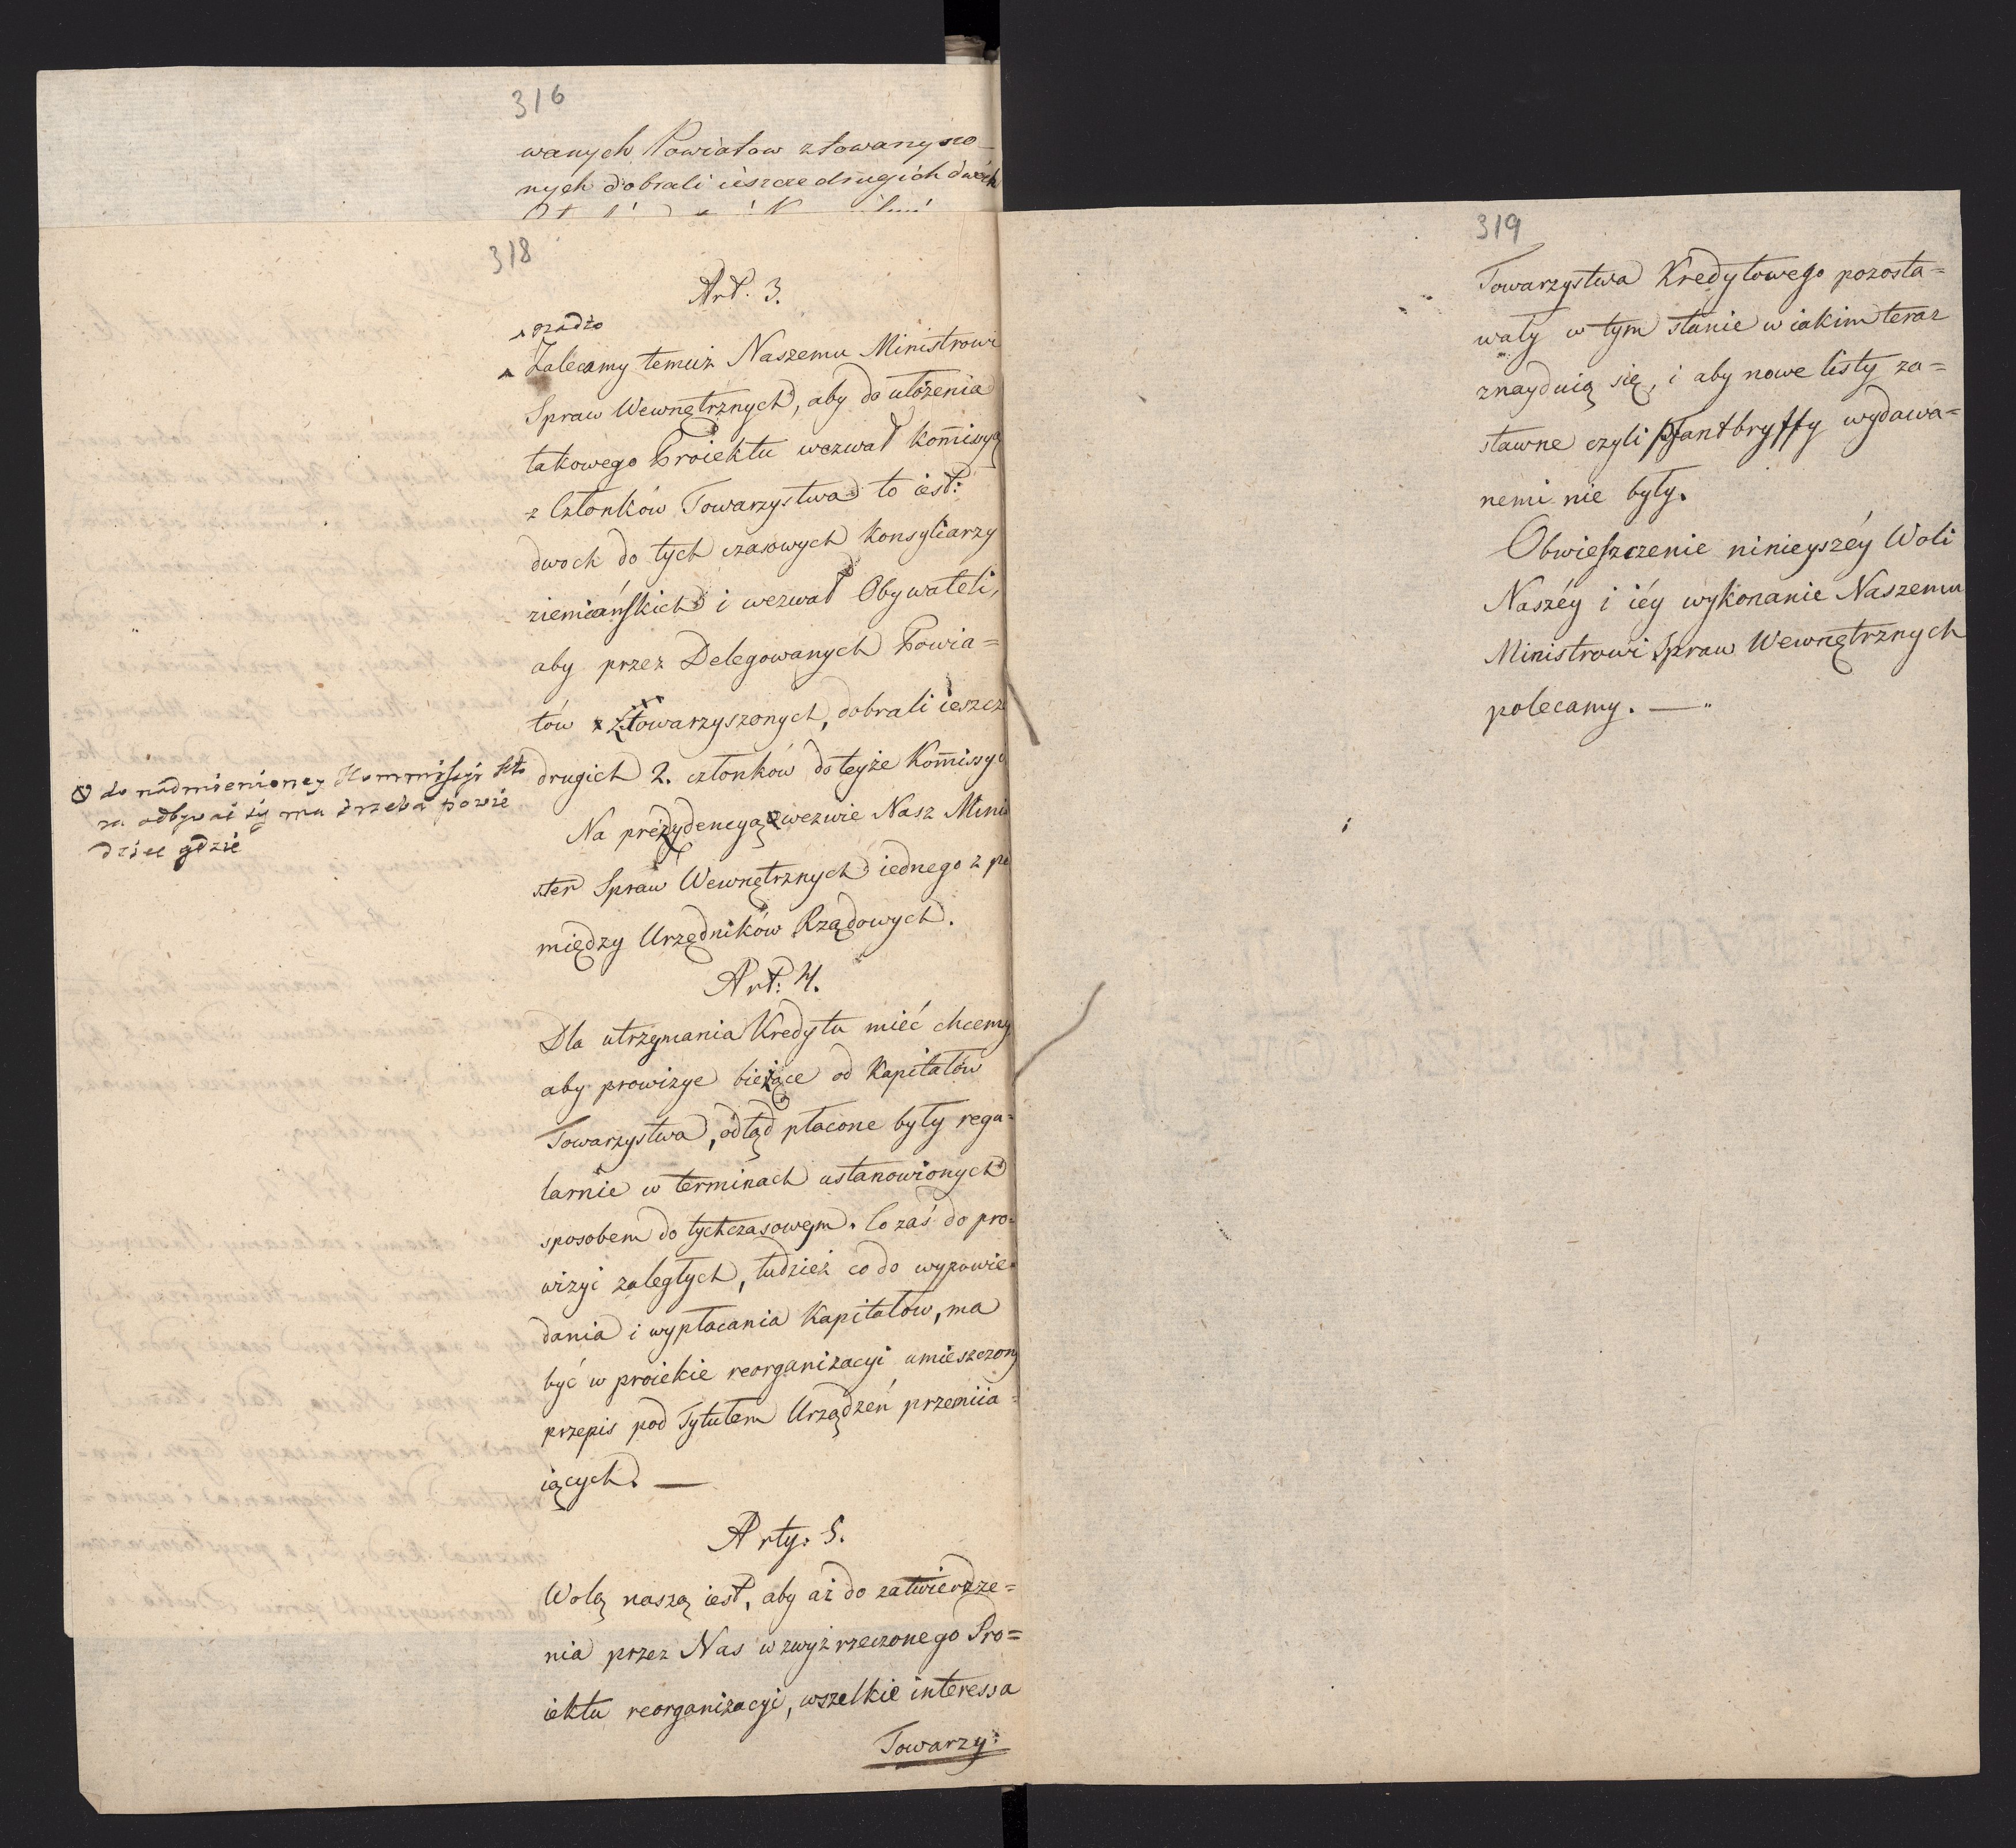 316
wanych Powiatow ztowarzyszo-
nych dobrali ieszcze drugich dwóch
318
Art. 3.
Zalecamy temuż Naszemu Ministrowi
Spraw Wewnętrznych, aby do ułożenia
takowego Proiektu wezwał Kom̄issyą
z Członków Towarzystwa to iest:
dwoch do tych czasowych Konsyliarzy
ziemiańskich i wezwał Obywateli,
aby przez Delegowanych Powia=
tów ztowarzyszonych, dobrali ieszcze
drugich 2. członków do teyże Kom̄issyi
Na prezydencyą wezwie Nasz Mini
ster Spraw Wewnętrznych iednego z po
między Urzędników Rządowych.
do nadmienioney Kommissyi któ
ra odbywać się ma trzeba powie
dzieć gdzie
Art: 4.
Dla utrzymania Kredytu mieć chcemy
aby prowizye bieżące od Kapitałów
Towarzystwa, odtąd płacone były regu=
larnie w terminach ustanowionych
sposobem do tychczasowym. Co zaś do pro=
wizyi zaległych, tudzież co do wypowie=
dania i wypłacania Kapitałów, ma
być w proiekie reorganizacyi umieszczony
przepis pod Tytułem Urządzeń przemiia=
iących. —
Arty: 5.
Wolą naszą iest, aby aż do zatwierdze=
nia przez Nas wzwyż rzeczonego Pro=
iektu reorganizacyi, wszelkie interessa
Towarzy:
319
Towarzystwa Kredytowego pozosta=
wały w tym stanie w iakim teraz
znayduią się, i aby nowe listy za=
stawne czyli Pfantbryffy wydawa=
nemi nie były.
Obwieszczenie ninieyszéy Woli
Naszéy i iéy wykonanie Naszemu
Ministrowi Spraw Wewnętrznych
polecamy. —